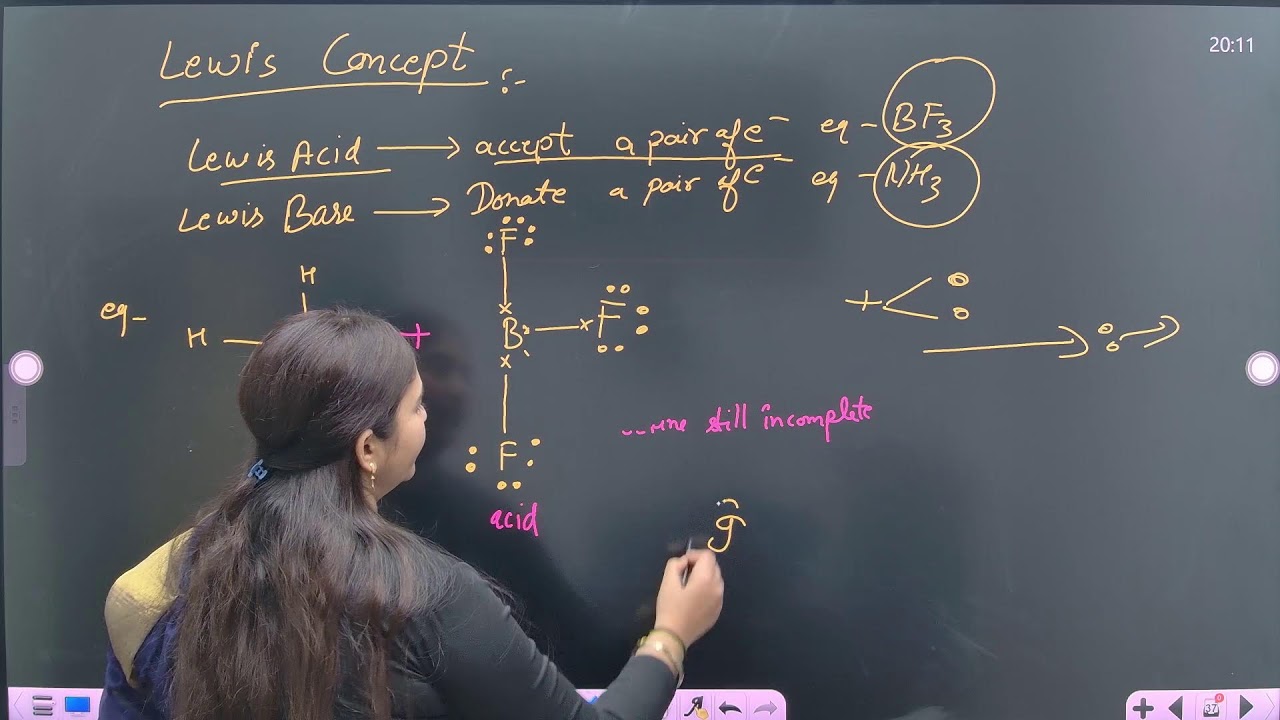 20:11
Lewis Concept :-
Lewis Acid → accept a pair of e⁻ eq - BF₃
Lewis Base → Donate a pair of e⁻ eq - NH₃
F
H
eq -
H
+
B
F
+
still incomplete
F
acid
37